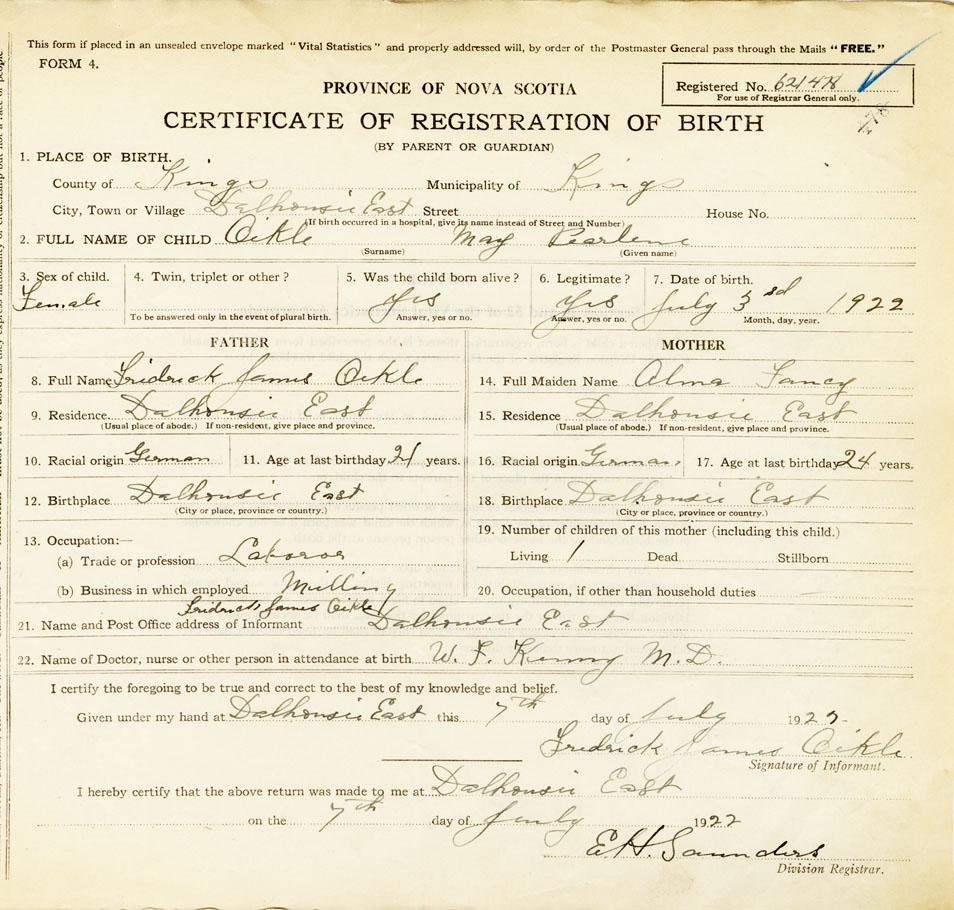 This form if placed in an unsealed envelope marked "Vital Statistics" and properly addressed will, by order of the Postmaster General pass through the Mails "FREE."
FORM 4.
PROVINCE OF NOVA SCOTIA
Registered No.
For use of Registrar General only.
CERTIFICATE OF REGISTRATION OF BIRTH
(BY PARENT OR GUARDIAN)
1. PLACE OF BIRTH.
County of Kings Municipality of Kings
City, Town or Village Dalhousie East Street House No.
(If birth occurred in a hospital, give its name instead of Street and Number)
2. FULL NAME OF CHILD Oikle May Pearlene
(Surname) (Given name)
3. Sex of child. 4. Twin, triplet or other? 5. Was the child born alive? 6. Legitimate? 7. Date of birth.
Female Yes Yes July 3rd 1922
To be answered only in the event of plural birth. Answer, yes or no. Answer, yes or no. Month, day, year.
FATHER MOTHER
8. Full Name Fridrick James Oikle 14. Full Maiden Name Alma
9. Residence Dalhousie East 15. Residence Dalhousie East
(Usual place of abode.) If non-resident, give place and province. (Usual place of abode.) If non-resident, give place and province.
10. Racial origin German 11. Age at last birthday years. 16. Racial origin German. 17. Age at last birthday 24 years.
12. Birthplace Dalhousie East 18. Birthplace Dalhousie East
(City or place, province or country.) (City or place, province or country.)
13. Occupation:— 19. Number of children of this mother (including this child.)
(a) Trade or profession Laboror Living 1 Dead Stillborn
(b) Business in which employed Milling 20. Occupation, if other than household duties
Fridrick James Oikle
21. Name and Post Office address of Informant Dalhousie East
22. Name of Doctor, nurse or other person in attendance at birth W. F. Kenny M.D.
I certify the foregoing to be true and correct to the best of my knowledge and belief.
Given under my hand at Dalhousie East this 7th day of July 1922
Fredrick James Oikle
Signature of Informant.
I hereby certify that the above return was made to me at Dalhousie East
on the 7th day of July 1922
E H. Saunders
Division Registrar.